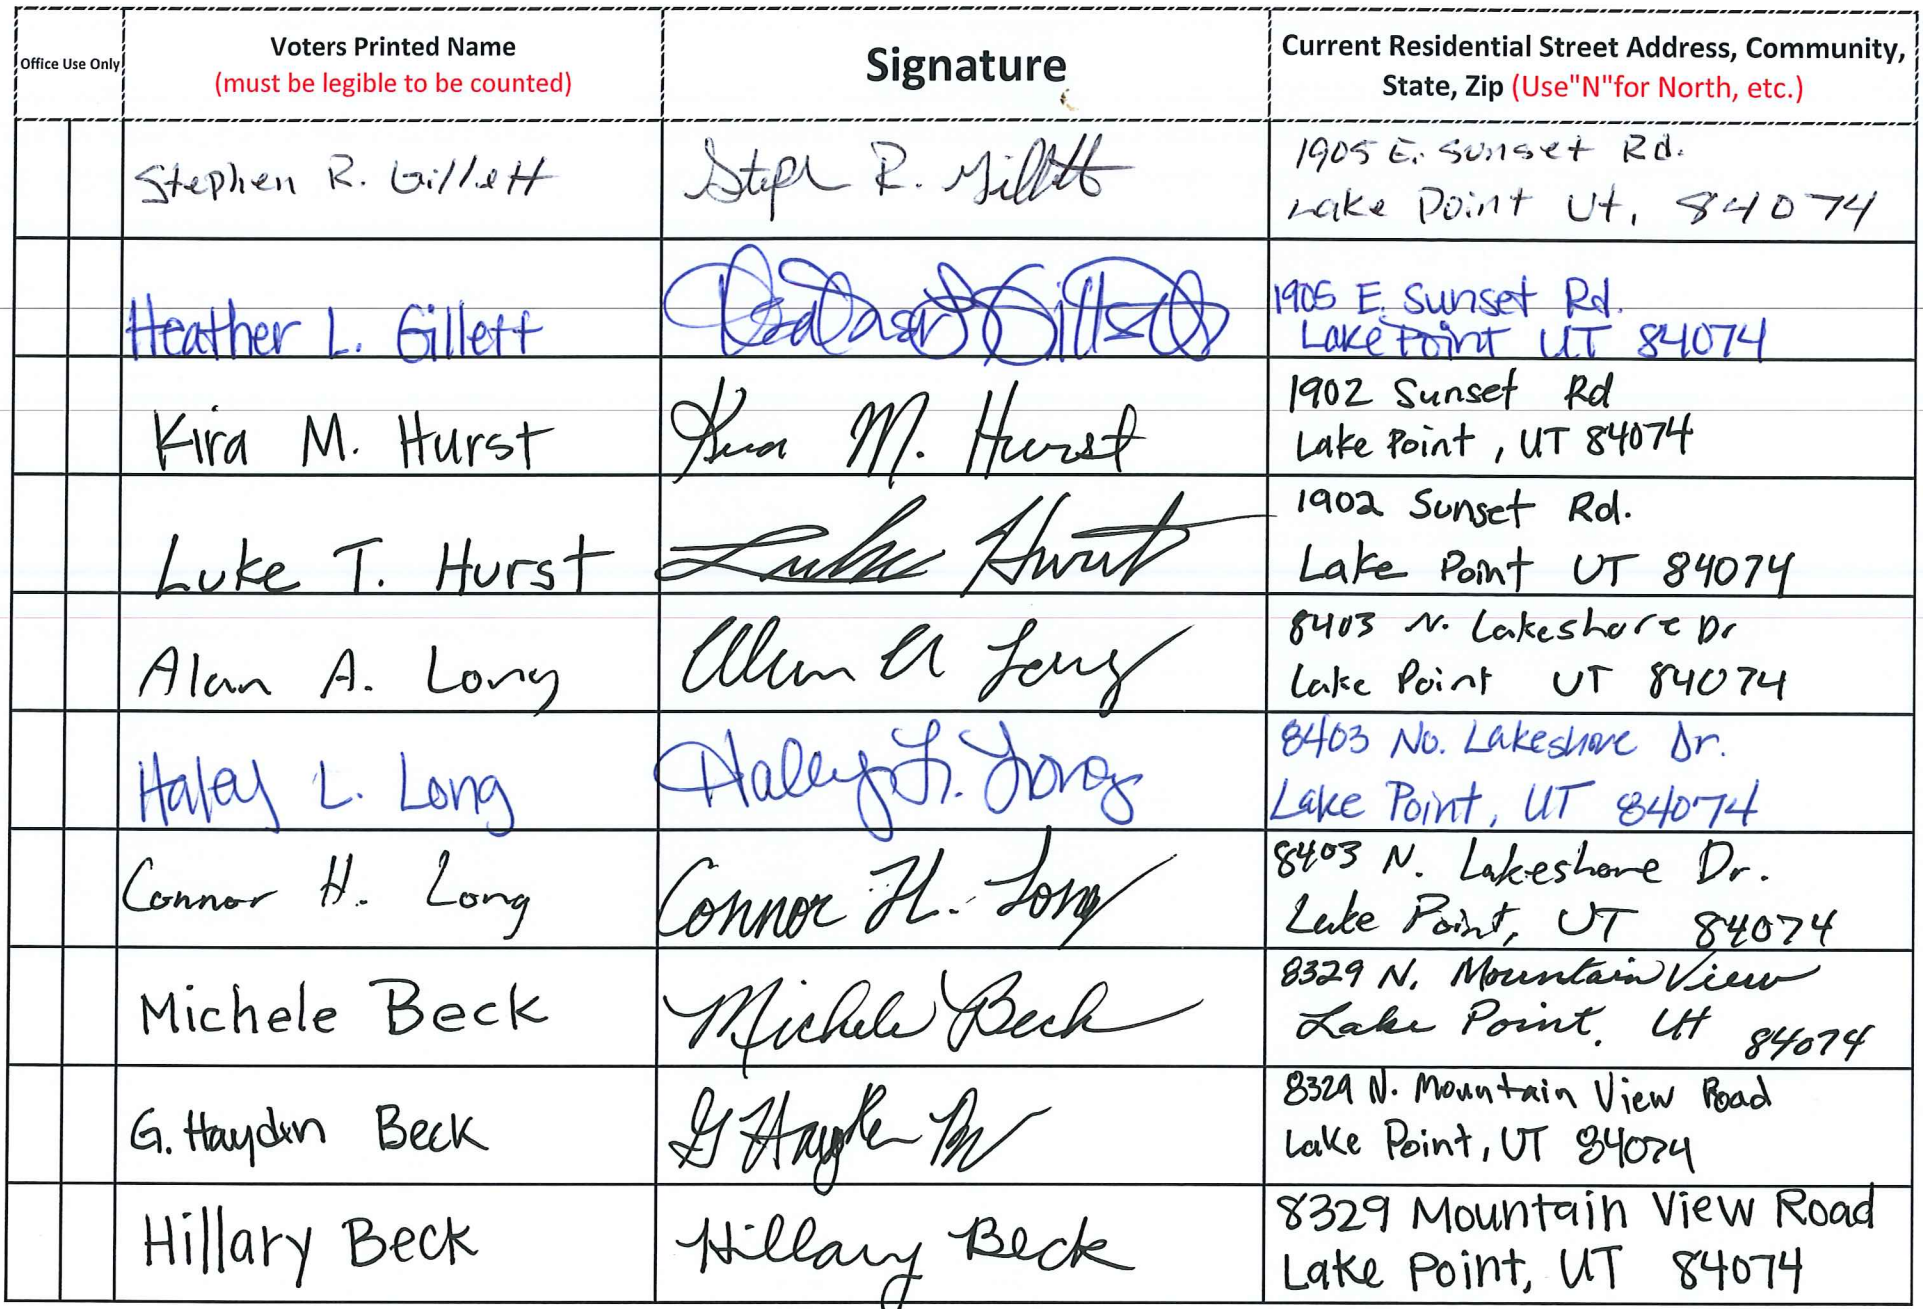 Office Use Only
Voters Printed Name
(must be legible to be counted)
Signature
Current Residential Street Address, Community,
State, Zip (Use"N"for North, etc.)
Stephen R. Gillett
Steph R. Gillett
1905 E. Sunset Rd.
Lake Point Ut, 84074
Heather L. Gillett
1905 E. Sunset Rd.
Lake Point UT 84074
Kira M. Hurst
Kira M. Hurst
1902 Sunset Rd
Lake Point, UT 84074
Luke T. Hurst
Luke Hurst
1902 Sunset Rd.
Lake Point UT 84074
Alan A. Long
Alan A Long
8403 N. Lakeshore Dr
Lake Point UT 84074
Haley L. Long
Haley L. Long
8403 No. Lakeshore Dr.
Lake Point, UT 84074
Connor H. Long
Connor H. Long
8403 N. Lakeshore Dr.
Lake Point, UT 84074
Michele Beck
Michele Beck
8329 N. Mountain View
Lake Point. Ut 84074
G. Haydn Beck
G Hayden
8329 N. Mountain View Road
Lake Point, UT 84074
Hillary Beck
Hillary Beck
8329 Mountain View Road
Lake Point, UT 84074